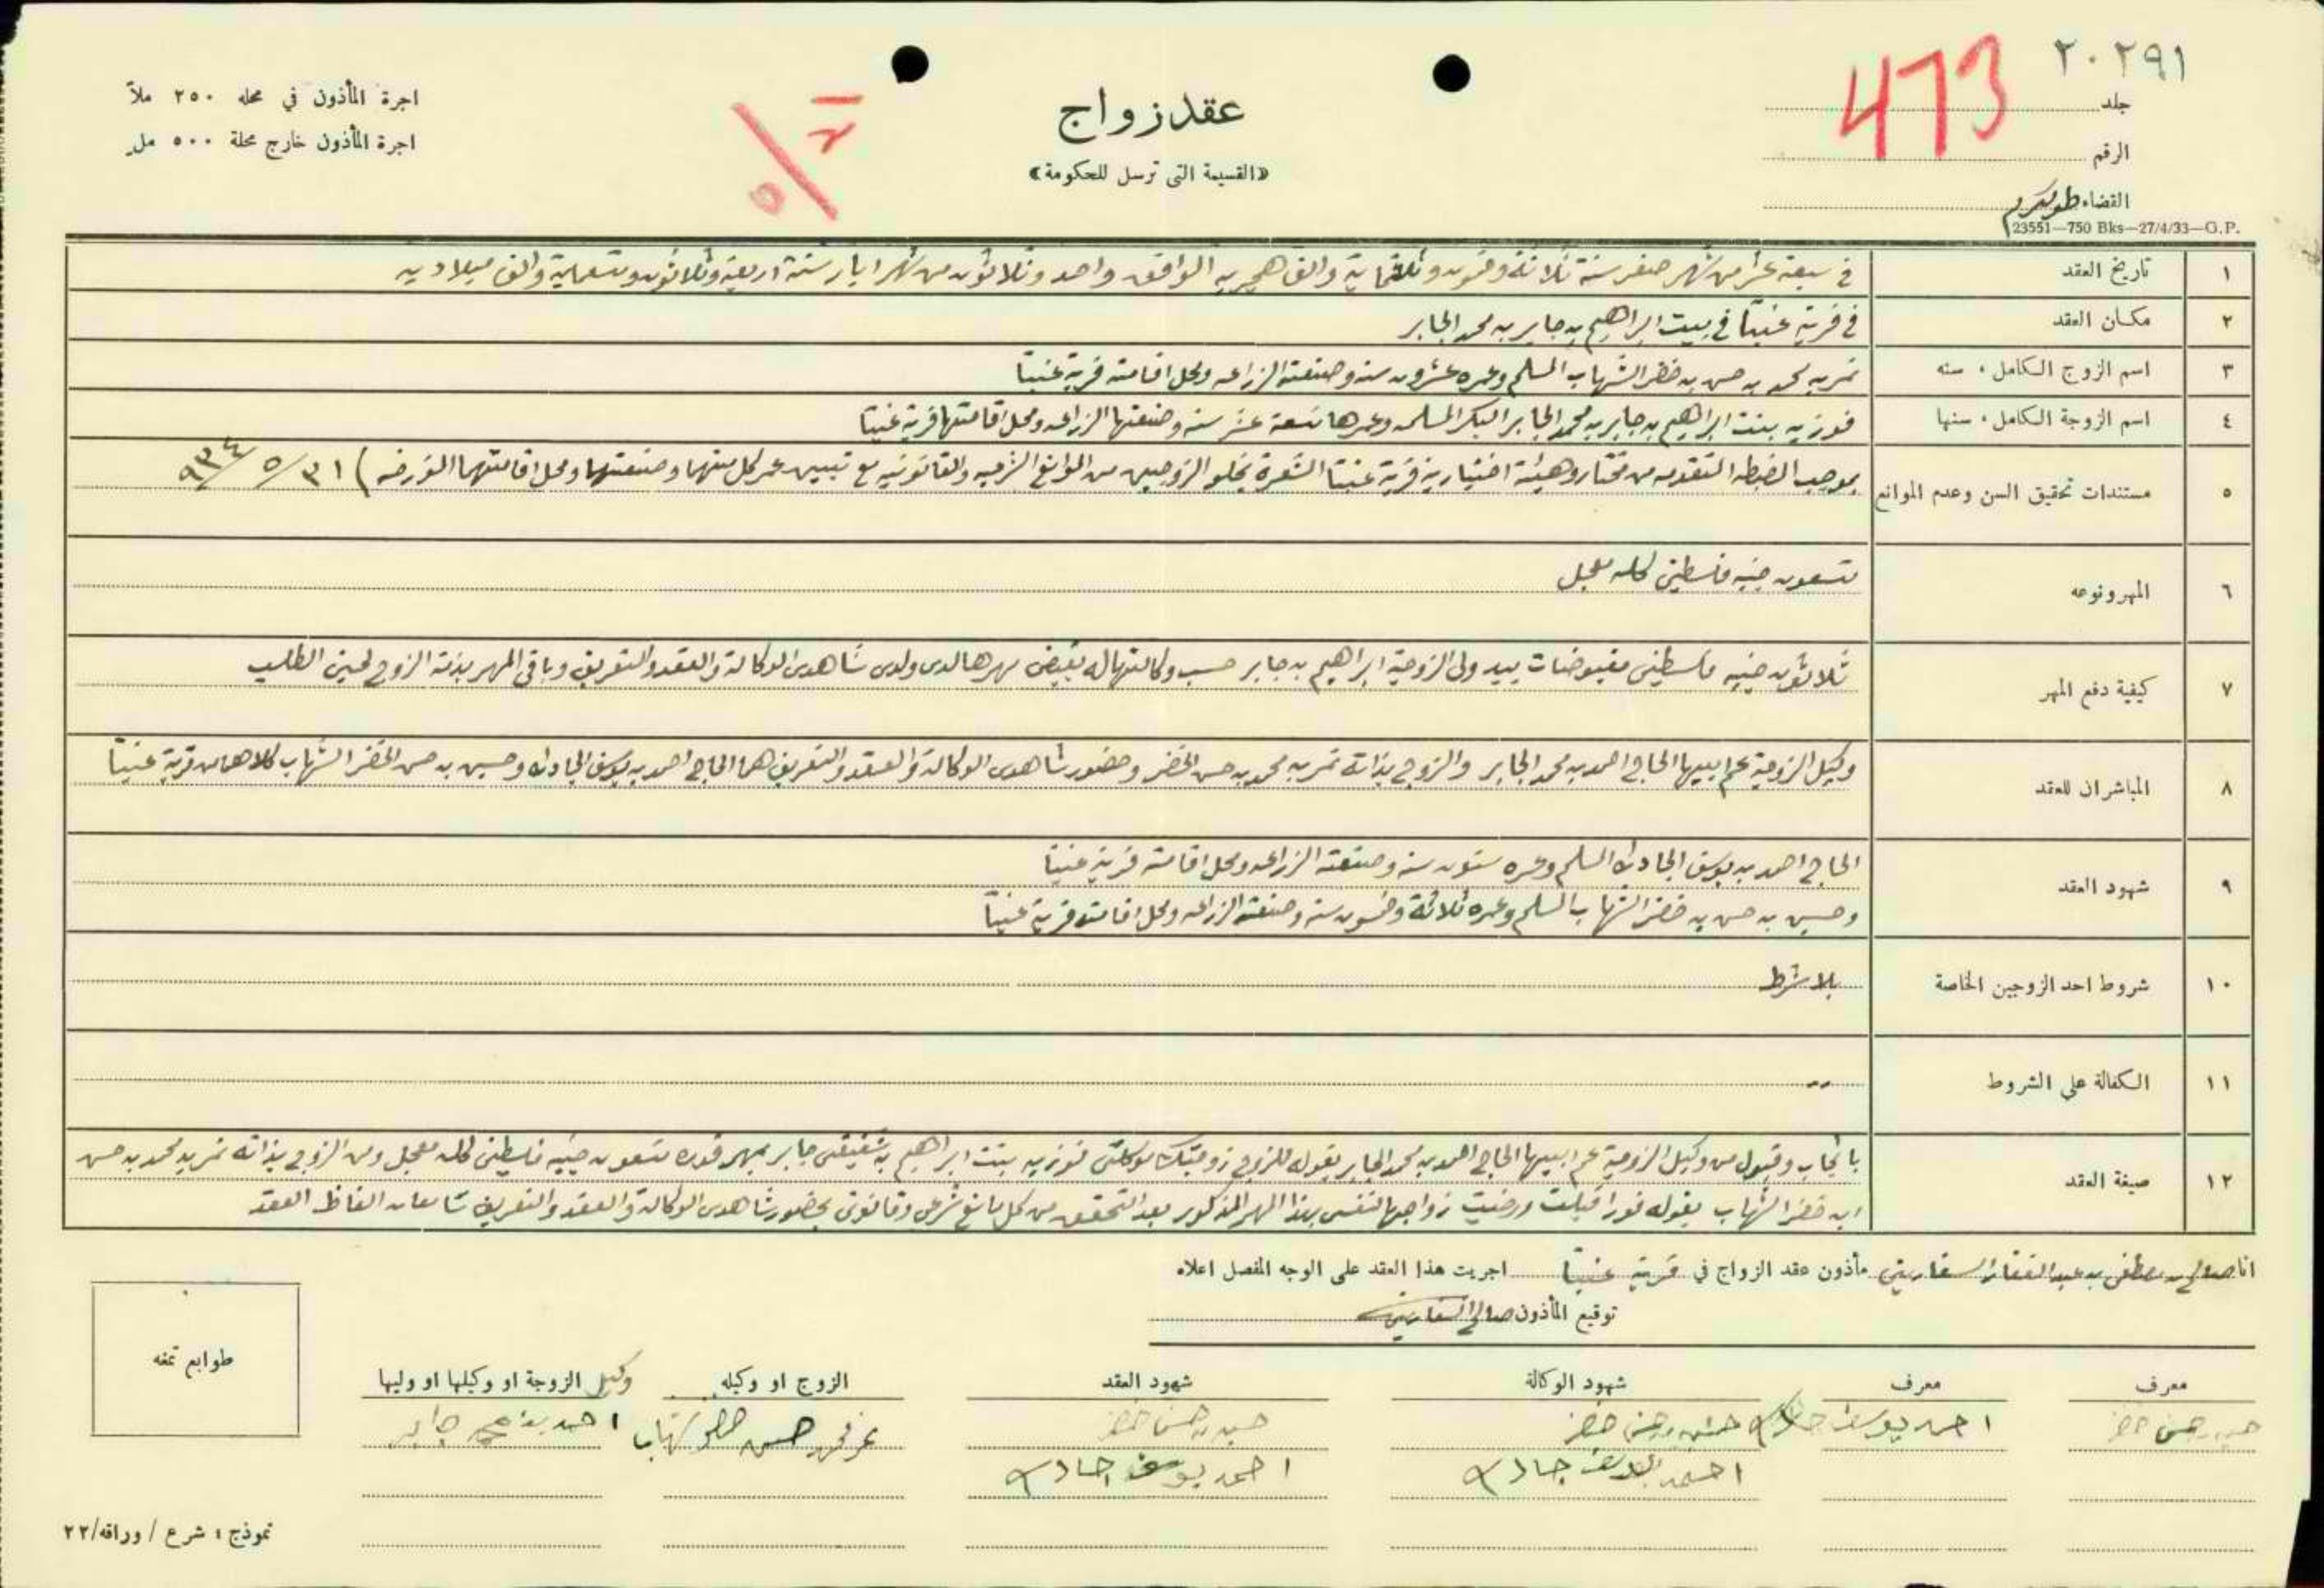 ٢٠٢٩١
473
جلد
الرقم
القضاء طولكرم
23551—750 Bks—27/4/33—G.P.
عقد زواج
«القسيمة التى ترسل للحكومة»
اجرة المأذون في محله ٢٥٠ ملاً
اجرة المأذون خارج محلة ٥٠٠ مل
١ تاريخ العقد في سبعة عشر من شهر صفر سنة ثلاثة وخمسون وثلاثماية والف هجريه الموافق واحد وثلاثون من شهر ايار سنة اربعة وثلاثون وتسعماية والف ميلاديه
٢ مكان العقد في قرية عنبتا في بيت ابراهيم بن جابر بن محمد الجابر
٣ اسم الزوج الكامل، سنه نمر بن محمد بن حسن بن خضر الشهاب المسلم وعمره عشرون سنه وصنعته الزراعه ومحل اقامته قرية عنبتا
٤ اسم الزوجة الكامل، سنها فوزيه بنت ابراهيم بن جابر بن محمد الجابر البكر المسلمه وعمرها تسعة عشر سنه وصنعتها الزراعه ومحل اقامتها قرية عنبتا
٥ مستندات تحقيق السن وعدم الموانع بموجب المضبطه المتقدمه من مختار وهيئة اختيارية قرية عنبتا المشعرة بخلو الزوجين من الموانع الشرعيه والقانونيه مع تبيين عمر كل منهما وصنعتهما ومحل اقامتهما المؤرخه) ٣١/٥/٩٣٤
٦ المهر ونوعه تسعون جنيه فلسطيني كله معجل
٧ كيفية دفع المهر ثلاثون جنيه فلسطيني مقبوضات بيد ولي الزوجة ابراهيم بن جابر حسب وكالتها له بقبض مهرها لدي ولدى شاهدي الوكالة والعقد والتعريف وباقي المهر بذمة الزوج لحين الطلب
٨ المباشران للعقد وكيل الزوجة عم ابيها الحاج احمد بن محمد الجابر والزوج بذاته نمر بن محمد بن حسن الخضر وحضور شاهدي الوكالة والعقد والتعريف هما الحاج احمد بن يوسف الجاد الله وحسين بن حسن الخضر الشهاب كلاهما من قرية عنبتا
٩ شهود العقد الحاج احمد بن يوسف الجاد الله المسلم وعمره ستون سنه وصنعته الزراعه ومحل اقامته قرية عنبتا
وحسين بن حسن بن خضر الشهاب المسلم وعمره ثلاثة وخمسون سنه وصنعته الزراعه ومحل اقامته قرية عنبتا
١٠ شروط احد الزوجين الخاصة بلا شرط
١١ الكفالة على الشروط
١٢ صيغة العقد بايجاب وقبول من وكيل الزوجة عم ابيها الحاج احمد بن محمد الجابر بقوله للزوج زوجتك موكلتي فوزيه بنت ابراهيم بن شقيقي جابر بمهر قدره تسعون جنيه فلسطيني كله معجل ومن الزوج بذاته نمر بن محمد بن حسن
ابن خضر الشهاب بقوله فورا قبلت ورضيت زواجها لنفسي بهذا المهر المذكور بعد التحقق من كل مانع شرعي وقانوني بحضور شاهدي الوكالة والعقد والتعريف سامعان الفاظ العقد
انا صالح بن مصطفى بن عبد الغفار السفاريني مأذون عقد الزواج في قرية عنبتا اجريت هذا العقد على الوجه المفصل اعلاه
توقيع المأذون صالح السفاريني
معرف معرف شهود الوكالة شهود العقد الزوج او وكيله وكيل الزوجة او وكيلها او وليها
حسين حسن خضر احمد يوسف جاد الله حسين حسن خضر حسين حسن خضر نمر محمد حسن خضر شهاب احمد محمد جابر
احمد يوسف جاد الله احمد يوسف جاد الله
طوابع تمغه
نموذج؛ شرع / وراقه/٢٢